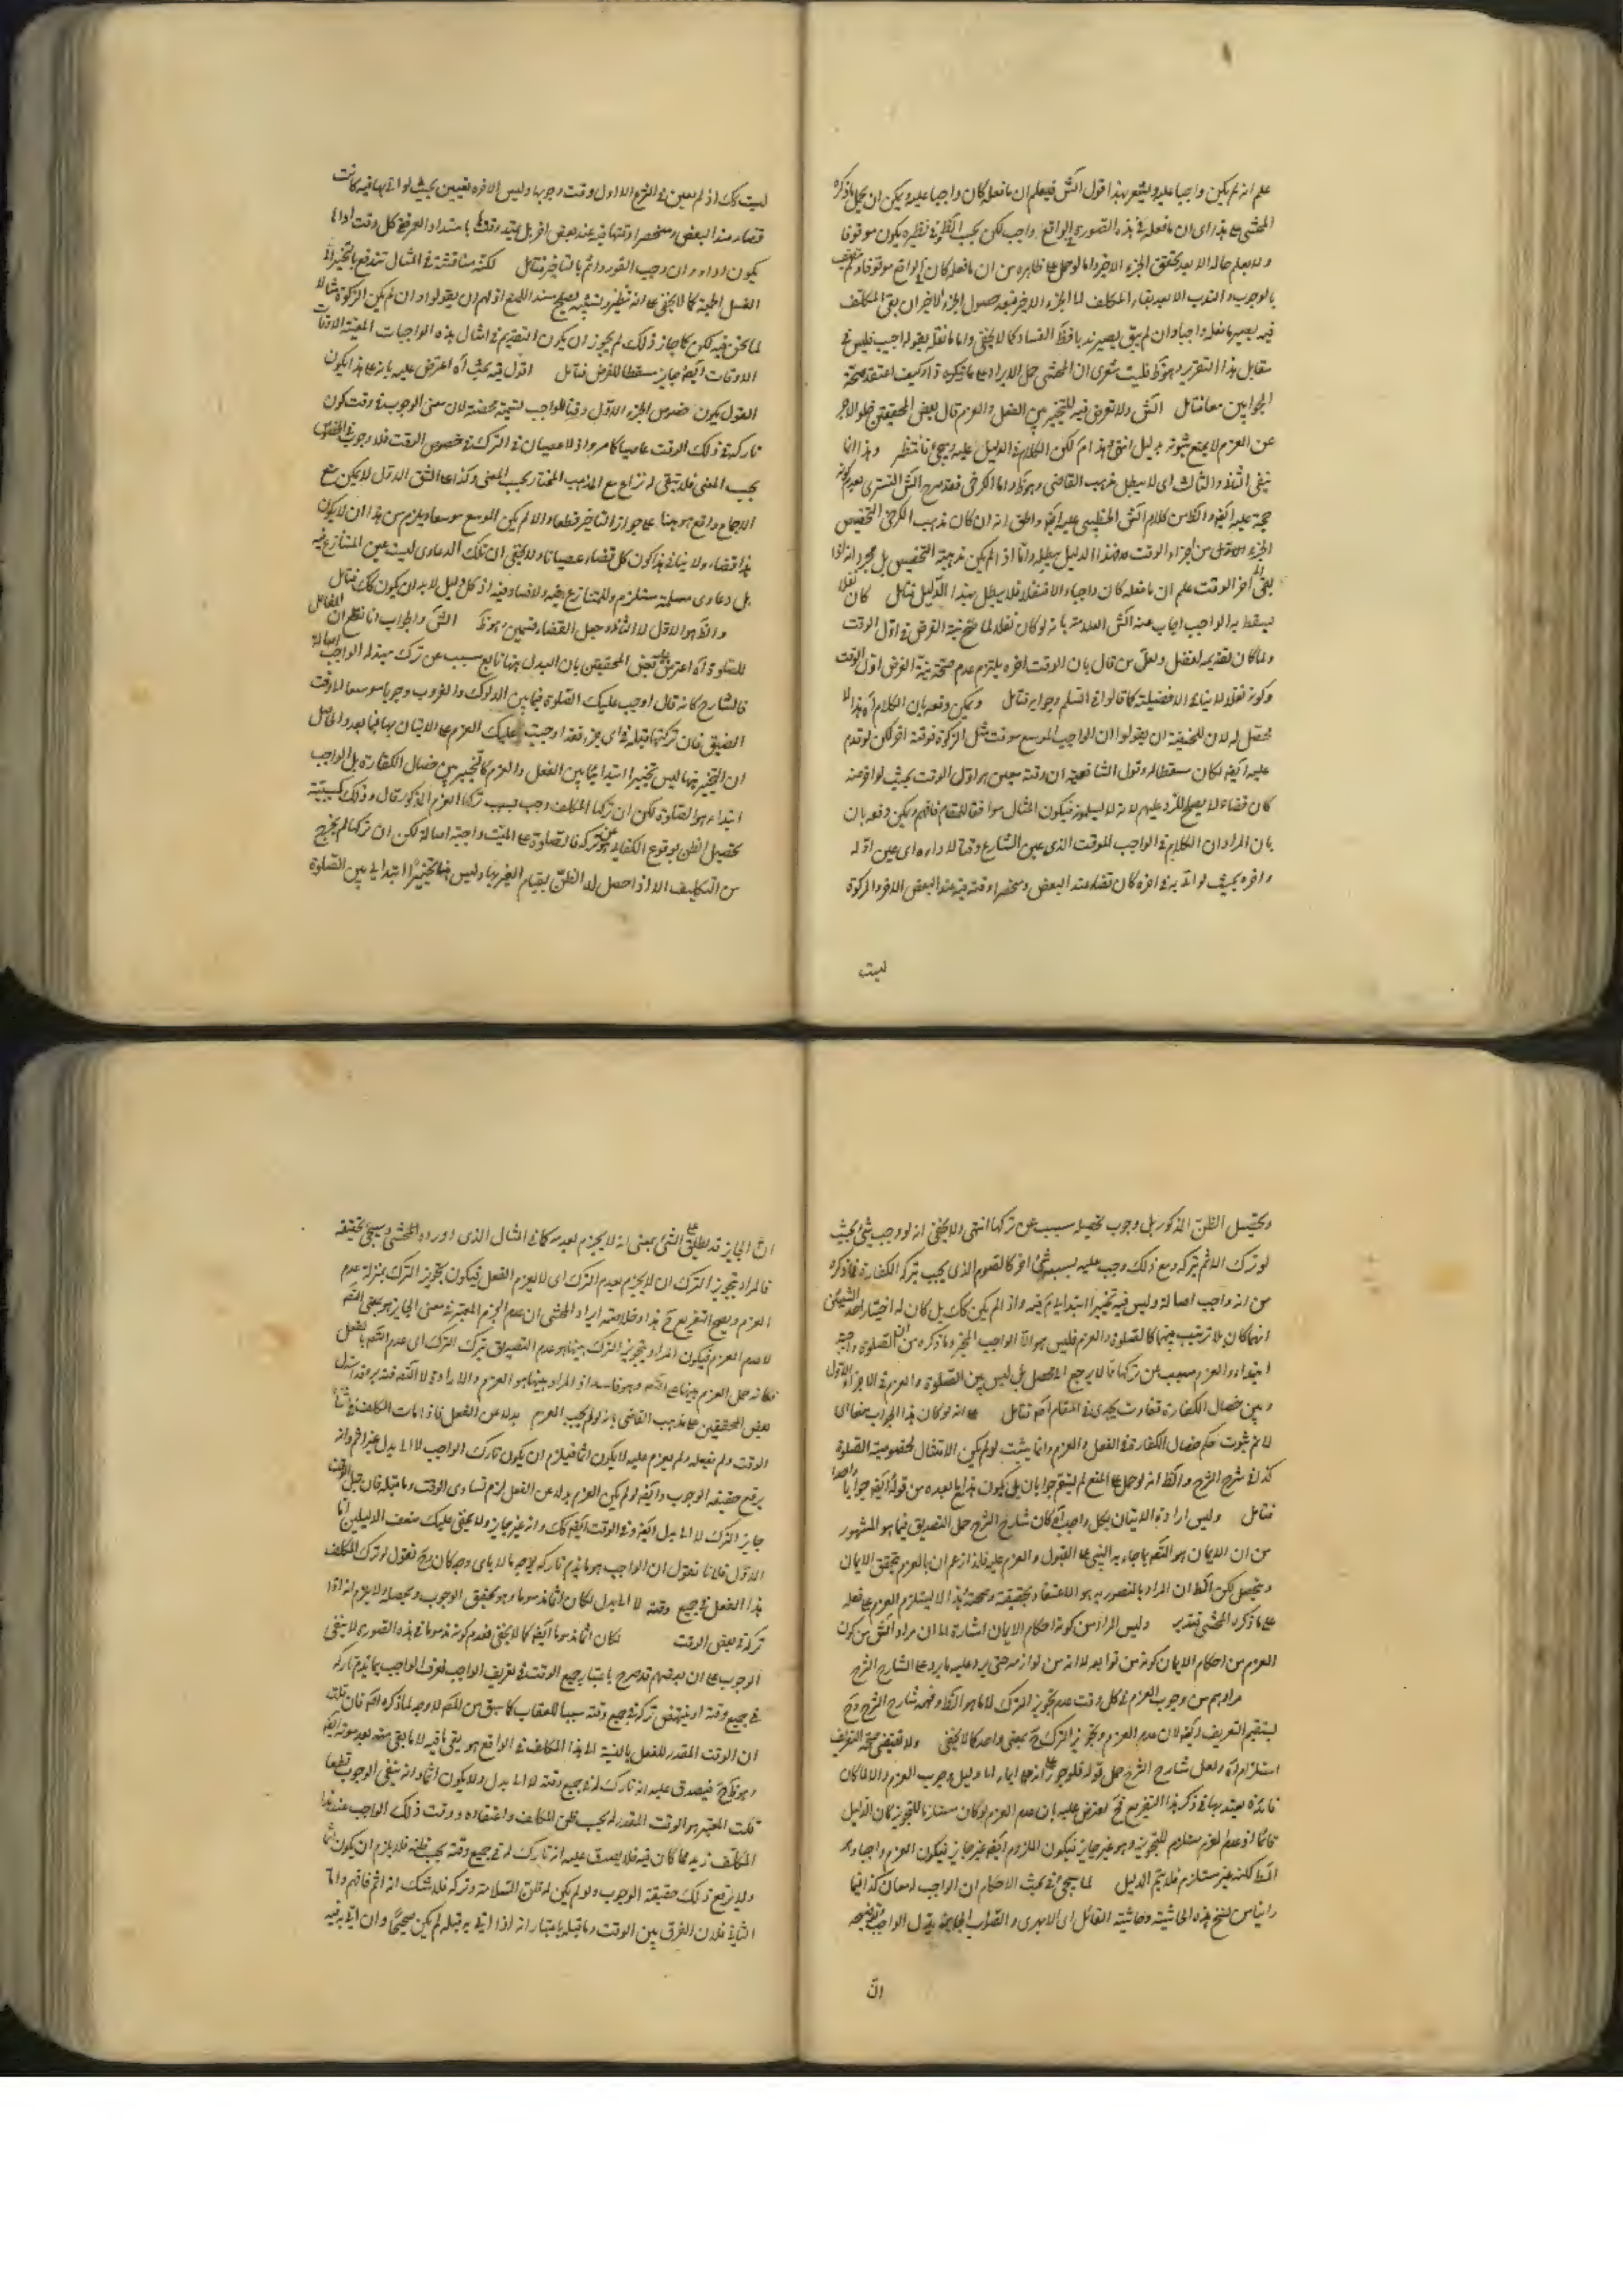 علم انه لم يكن واجبا عليه ويشعر بهذا قول الش فيعلم ان ما فعله كان واجبا عليه ويكن ان يحمل ما ذكره
المحشى على هذا اى ان ما فعله فى هذه الصورة فى الواقع واجب لكن يجب الظ فى نظره يكون موقوفا
ولا يعلم حاله الا بعد تحقق الجزء الاخير واما لو حمل على ظاهره من ان ما فعله كان فى الواقع موقوفا
بالوجوب والندب الا بعد بقاء المكلف اما الجزء الاخير فبعد حصول الجزء الاخير ان بقى المكلف
فيه يصير ما فعله واجبا وان لم يبق يصير ندبا فظ الفساد كما لا يخفى واما ما نقل بقوله واجب فليس فى
مقابل هذا التقرير وهو ظ فليت شعرى ان المحشى حمل الايراد على ما ذكره وكيف اعتقد صحة
الجوابين معا فتامل الش ولا تعرض فيه للتخيير بين الفعل والعزم قال بعض المحققين خلو الاجر
عن العزم لا يمنع ثبوته بدليل انتهى هذا لكن الكلام فى الدليل عليه ويجئ فانتظر وهذا انما
ينفى الثانى والثالث اى لا يبطل مذهب القاضى وهو ظ واما الكرخى فقد صرح الش التسترى بعدم كونه
حجة عليه ايضا
الجزء الاول من اجزاء الوقت فهذا الدليل يبطله واما اذا لم يكن مذهبه التخصيص بل مجرد انه اذا
بقى آخر الوقت علم ان ما فعله كان واجبا والا فنفلا فلا يبطل بهذا الدليل فتامل كان نفلا
يسقط به الواجب اجاب عنه الش العلامة بانه لو كان نفلا لما صح نية الفرض فى اول الوقت
ولما كان تقديمه افضل ولعل من قال بان الوقت آخره يلتزم عدم صحة نية الفرض اول الوقت
وكونه نفلا لا ينافى الافضلية كما قالوا فى السلم وجوابه فتامل ويمكن دفعه بان الكلام آه هذا لا
محصل له لان للحنفية ان يقولوا ان الواجب الموسع موقت مثل الزكوة فوقته آخر لكن لو قدم
عليه ايضا لكان مسقطا له وقول الشافعية ان وقته معين هو اول الوقت بحيث لو اخر عنه
كان قضاء لا يصلح للرد عليهم لانه لا يسلمونه فيكون المثال موافقا للمقام فافهم ويكن دفعه بان
بان المراد ان الكلام فى الواجب الموقت الذى عين الشارع وقتا لادائه اى عين اوله
وآخره بحيث لو اتى به فى آخره كان قضاء عند البعض ومنحصرا وقته فيه عند البعض الاخر والزكوة
ليت
ليت كك اذ لم يعين فى الشرع الاول وقت وجوبها وليس لآخره تعيين بحيث لو اتى بها فيه كانت
قضاء عند البعض ومنحصرا وقتها فيه عند بعض اخر بل يمتد وقتها بامتداد العمر ففى كل وقت اداها
يكون اداء وان وجب الفور واثم بالتاخير فتامل لكنه مناقشة فى المثال تندفع
الفسل الجمعة كما لا يخفى على انه تنظير وتشبيه يصلح سند المنع اذ لهم ان يقولوا وان لم يكن الزكوة مثالا
لما نحن فيه لكن كما جاز ذلك لم لا يجوز ان يكون التقديم فى امثال هذه الواجبات المعينة الاوقات
الاوقات ايضا جايز مسقطا للفرض فتامل اقول فيه بحث آه اعترض عليه بانه على هذا يكون
القول بكون خصوص الجزء الاول وقتا للواجب تسمية محضة لان معنى الوجوب فى وقت كون
تاركه فى ذلك الوقت عاصيا كما مر واذ لا عصيان فى الترك فى خصوص الوقت فلا وجوب
بحسب المعنى فلا يبقى له نزاع مع المذهب المختار بحسب المعنى وكذا على الشق الاول لا يمكن منع
الاجماع واقع هو هنا على جواز التاخير قطعا والا لم يكن الموسع موسعا ويلزم من هذا ان لا يكون
هذا قضاء ولا ينافى هذا كون كل قضاء عصيانا ولا يخفى ان تلك الدعاوى ليست عين المتنازع فيه
بل دعاوى مسلمة ستلزم والمتنازع فيه ولا فساد فيه اذ كل دليل لا بد ان يكون كك فتامل
والظ هو الاول لا الثانى وجعل القضاء قسمين وهو ظ الش والجواب انا نقطع ان الفاعل
للصلوة آه اعترض عليه بعض المحققين بان البدل هنا تابع سبب عن ترك مبدله الواجب اصالة
فالشارع كانه قال اوجب عليك الصلوة فيما بين الدلوك والغروب وجوبا موسعا للوقت
المضيق فان تركتها قبله فى اى جزء فقد اوجبت عليك العزم على الاتيان بها فيما بعد والحاصل
ان التخيير هنا ليس تخييرا ابتدائيا بين الفعل والعزم كالتخيير بين خصال الكفارة بل الواجب
ابتداء هو الصلوة لكن ان تركها المكلف وجب بسبب تركها العزم المذكور قال وذلك كسببية
تحصيل الظن بوقوع الكفاية عن تركه فالصلوة على الميت واجبة اصالة لكن ان تركها لم يخرج
من التكليف الا اذا حصل له الظن بقيام الغير بها وليس هنا تخييرا ابتدائى بين الصلوة
وتحصيل الظن المذكور بل وجوب تحصيله سبب عن تركها انتهى ولا يخفى انه لو وجب شئ بحيث
لو ترك الاثم بتركه ومع ذلك وجب عليه بسببه شئ آخر كالصوم الذى يجب بتركه الكفارة فما ذكره
من انه واجب اصالة وليس فيه تخييرا ابتدائيا ثم فيه واذا لم يكن كك بل كان له اختيار احد الشيئين
ايهما كان بلا ترتيب بينهما كالصلوة والعزم فليس هو الا الواجب المخير وما ذكره من ان الصلوة واجبة
ابتداء والعزم سبب عن تركها مما لا يرجع الى محصل بل ليس بين الصلوة والعزم فى الاجزاء الاول
وبين خصال الكفارة تفاوت يجدى فى المقام آه فتامل على انه لو كان هذا الجواب منعا اى
لا نم ثبوت حكم خصال الكفارة فى الفعل والعزم وانما يثبت لو لم يكن الامتثال لخصوصية الصلوة
كذا فى شرح الشرح والظ انه لو حمل على المنع لم يستقم جوابان بل يكون هذا مع ما بعده من قوله ايضا جوابا واحدا
فتامل وليس ارادة الاتيان بكل واجب آه كان شارح الشرح حمل التصديق فيما هو المشهور
من ان الايمان هو التصديق بما جاء به النبى على القبول والعزم عليه فلذا زعم ان بالعزم تحقق الايمان
ويحصل لكن الظ ان المراد بالتصديق به هو الاعتقاد بحقيقته وصحته وهذا لا يستلزم العزم على فعله
على ما ذكره المحشى فتدبر وليس المراد من كونه احكام الايمان اشارة الى ان مراد الش من كون
العزم من احكام الايمان كونه من توابعه لا انه من لوازمه حتى يرد عليه ما يرد على الشارح الشرح
مرادهم من وجوب العزم فى كل وقت عدم تجويز الترك لا ما هو الظ وفهمه شارح الشرح وح
يستقيم التعريف ايضا لان عدم العزم وتجويز الترك ح بمعنى واحد كما لا يخفى ولا تقتضى صحة التعريف
استلزام آه ولعل شارح الشرح حمل قوله فلو جوز على انه ايماء الى دليل وجوب العزم والا لما كان
فائدة يعتد بها فى ذكر هذا التفريع فح يعترض عليه بان عدم العزم لو كان مستلزما للتجويز كان الدليل
تماما اذ عدم العزم مستلزم للتجويز وهو غير جايز فيكون الملزوم ايضا غير جايز فيكون العزم واجبا وهو
الظ لكنه غير مستلزم فلا يتم الدليل لما سيجئ فى بحث الاحكام ان الواجب له معان كذا فيما
راينا من نسخ هذه الحاشية وحاشية القائل اى الابهرى والصواب الجايز بدل الواجب
ان
ان الجايز قد يطلق على الشئ بمعنى انه لا يجزم بعدمه كما فى المثال الذى اورده المحشى وسيجئ تحقيقه
فالمراد بتجويز الترك ان لا يجزم بعدم الترك اى لا يعزم الفعل فيكون تجويز الترك بمنزلة عدم
العزم ويصح التفريع ح هذا وخلاصة ايراد المحشى ان عدم الجزم المعتبر فى معنى الجايز هو بمعنى
لا عدم العزم فيكون المراد بتجويز الترك هنا هو عدم التصديق بترك الترك اى عدم
فكانه حمل العزم هنا على وهو فاسد اذ المراد هنا هو العزم والارادة لا استدل
بعض المحققين على مذهب القاضى بانه لو لم يجب العزم بدلا عن الفعل فاذا مات المكلف فى اثناء
الوقت ولم يفعله ولم يعزم عليه لا يكون اثما فيلزم ان يكون تارك الواجب لا الى بدل غير اثم وانه
يرفع حقيقة الوجوب وايضا لو لم يكن العزم بدلا عن الفعل لزم تساوى الوقت وما قبله فان قبل الوقت
جايز الترك لا الى بدل ايضا وفى الوقت ايضا كك وانه غير جايز ولا يخفى عليك ضعف الدليلين اما
الاول فلانا نقول ان الواجب هو ما يذم تاركه بوجه ما لا باى وجه كان وح نقول لو ترك المكلف
هذا الفعل فى جميع وقته لا الى بدل لكان اثما مذموما وهو تحقيق الوجوب ويحصله ولا يلزم انه اذا
تركه فى بعض الوقت لكان اثما مذموما ايضا كما لا يخفى فعدم كونه مذموما فى هذه الصورة لا ينفى
الوجوب على ان بعضهم قد صرح باعتبار جميع الوقت فى تعريف الواجب فعرف الواجب بما يذم تاركه
فى جميع وقته او ينتهض تركه فى جميع وقته سببا للعقاب كما سبق من المص لا وجه لما ذكره فان قلت
ان الوقت المقدر للفعل بالنسبة الى هذا المكلف فى الواقع هو بقى فيه لا ما بقى منه بعد موته ايضا
وهو ظ ح فيصدق عليه انه تارك له فى جميع وقته لا الى بدل ولا يكون اثما وانه ينفى الوجوب قطعا
قلت المعتبر هو الوقت المقدر له بحسب ظن المكلف واعتقاده ووقت ذلك الواجب عند هذا
المكلف ازيد مما كان فيه فلا يصدق عليه انه تارك له فى جميع وقته بحسب ظنه فلا يلزم ان يكون اثما
ولا يرفع ذلك حقيقة الوجوب ولو لم يكن له ظن السلامة وتركه فلا شك انه اثم فافهم واما
الثانى فلان الفرق بين الوقت وما قبله باعتبار انه اذا اتى به قبله لم يكن صحيحا وان اتى به فيه